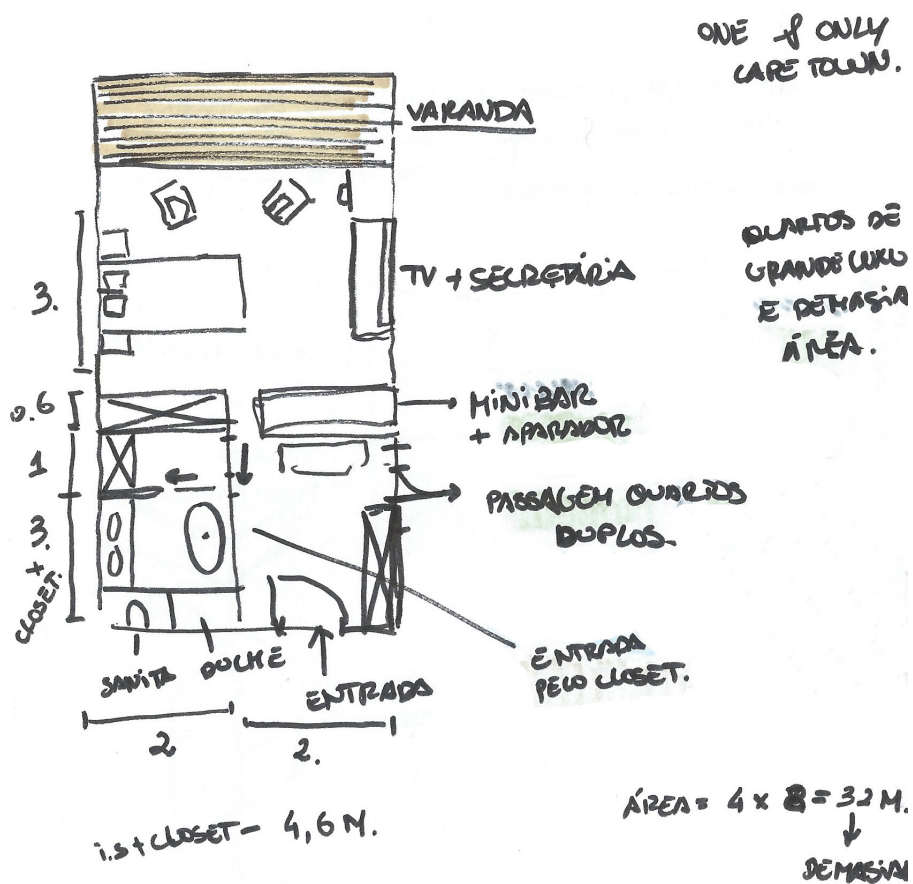 ONE & ONLY
CAPE TOWN.
VARANDA
QUARTOS DE
GRANDE LUXO
E DEMASIA
ÁREA.
TV + SECRETÁRIA
3.
0.6
MINIBAR
+ APARADOR
1
PASSAGEM QUARTOS
DUPLOS.
3.
+
CLOSET.
ENTRADA
PELO CLOSET.
SANITA
DUCHE
ENTRADA
2
2.
i.s + CLOSET - 4,6 M.
ÁREA = 4 x 8 = 32 M.
DEMASIA